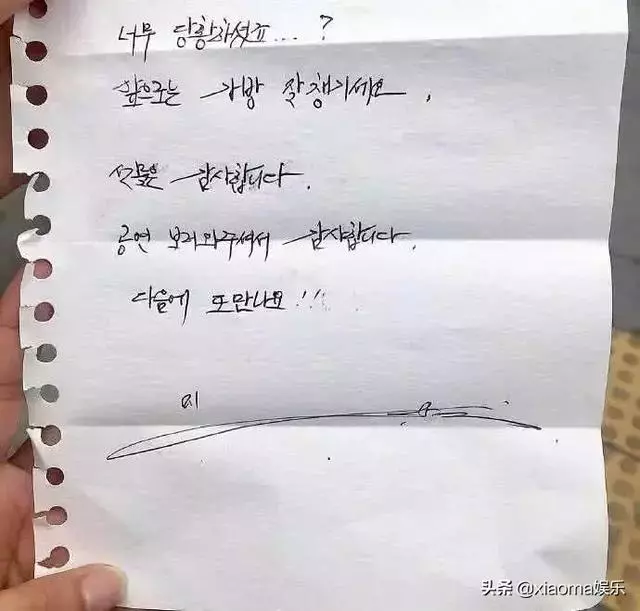 너무 당황하셨죠... ?
앞으로는 가방 잘 챙기세요.
선물은 감사합니다.
공연 보러와주셔서 감사합니다.
다음에 또만나요!!!
头条 @xiaoma娱乐